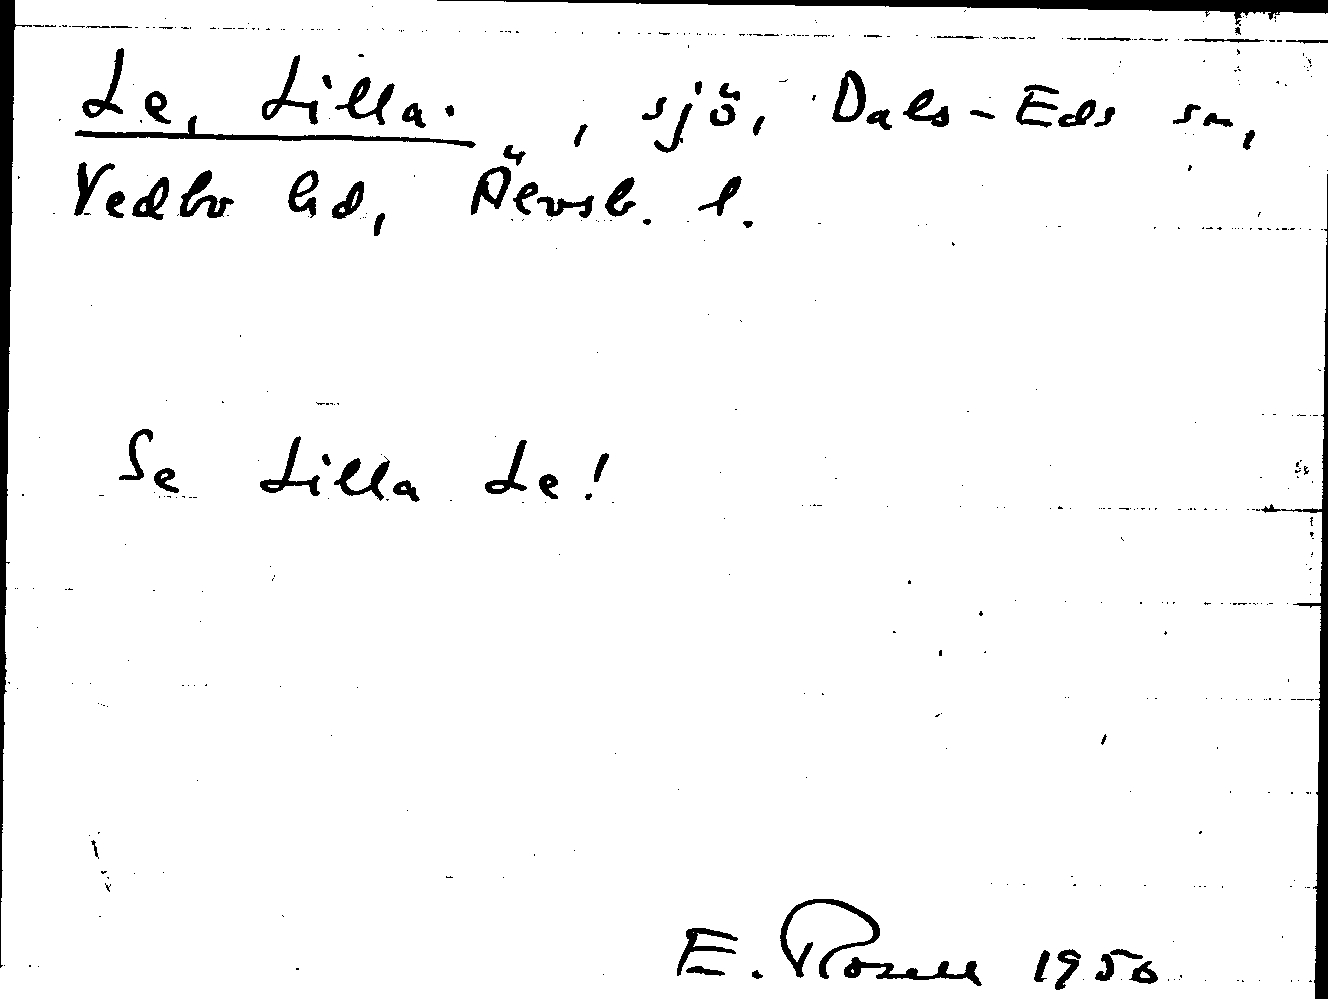 Le, Lilla. , sjö, Dals-Eds sn,
Vedbo hd, Älvsb. l.
Se Lilla Le!
E. Rosell 1950